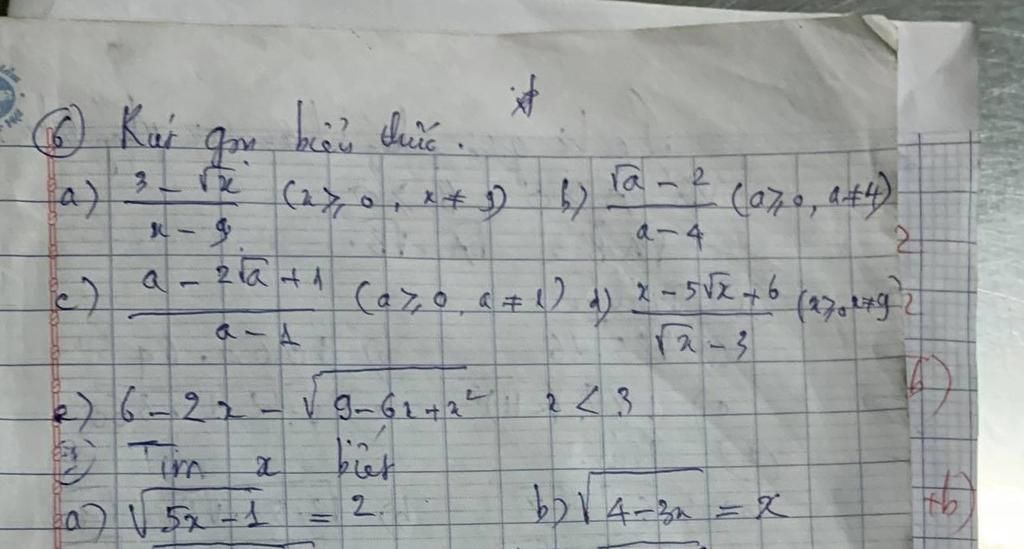 6) Rút gọn biểu thức.
a) (3 - √x)/(x - 9) (x ≥ 0, x ≠ 9) b) (√a - 2)/(a - 4) (a ≥ 0, a ≠ 4)
c) (a - 2√a + 1)/(a - 1) (a ≥ 0, a ≠ 1) d) (x - 5√x + 6)/(√x - 3) (x ≥ 0, x ≠ 9)
e) 6 - 2x - √(9 - 6x + x²) x < 3
7) Tìm x biết
a) √(5x - 1) = 2 b) √(4 - 3x) = x